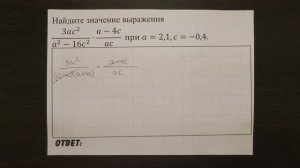 Найдите значение выражения
3ac² / a² − 16c² · a − 4c / ac при a = 2,1, c = −0,4.
3ac² / (a−4c)(a+4c) · a−4c / ac
ОТВЕТ: